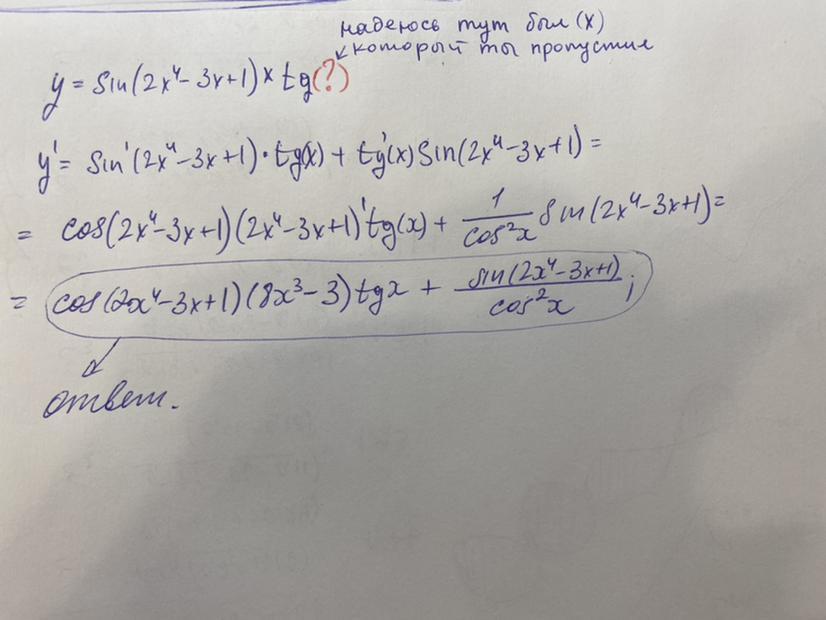 надеюсь тут был (x)
который ты пропустил
y = sin(2x⁴-3x+1) × tg(?)
y' = sin'(2x⁴-3x+1)·tg(x) + tg'(x) sin(2x⁴-3x+1) =
= cos(2x⁴-3x+1)(2x⁴-3x+1)' tg(x) + 1/cos²x sin(2x⁴-3x+1) =
= cos(2x⁴-3x+1)(8x³-3)tgx + sin(2x⁴-3x+1)/cos²x ;
ответ.